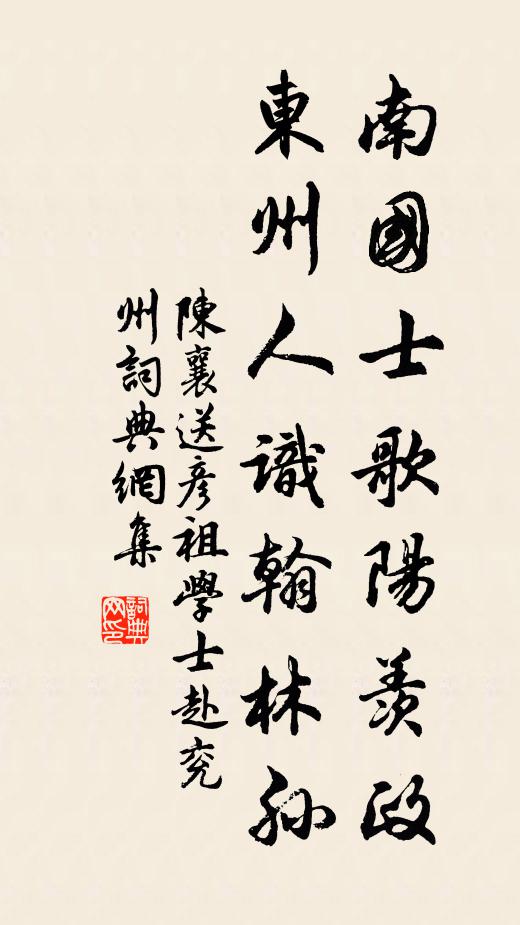 南國士歌陽羨政
東州人識翰林孫
陳襄送彦祖學士赴兖
州詞典網集
詞典网印